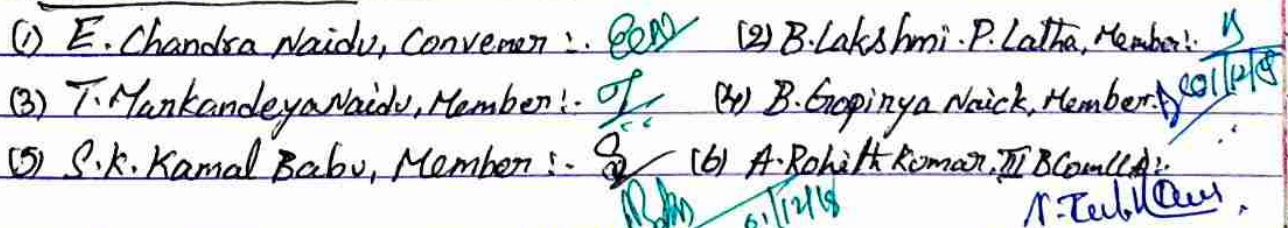 (1) E. Chandra Naidu, Convener :. (2) B. Lakshmi. P. Latha, Member:.
(3) T. Markandeya Naidu, Member :- (4) B. Gopinya Naick, Member. 01/12/18
(5) S.K. Kamal Babu, Member :- (6) A. Rohith Kumar. III BCom(CA):.
01/12/18